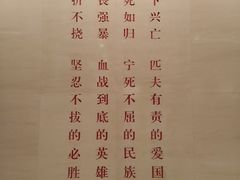 下兴亡 匹夫有责的爱国
死如归 宁死不屈的民族
畏强暴 血战到底的英雄
折不挠 坚忍不拔的必胜